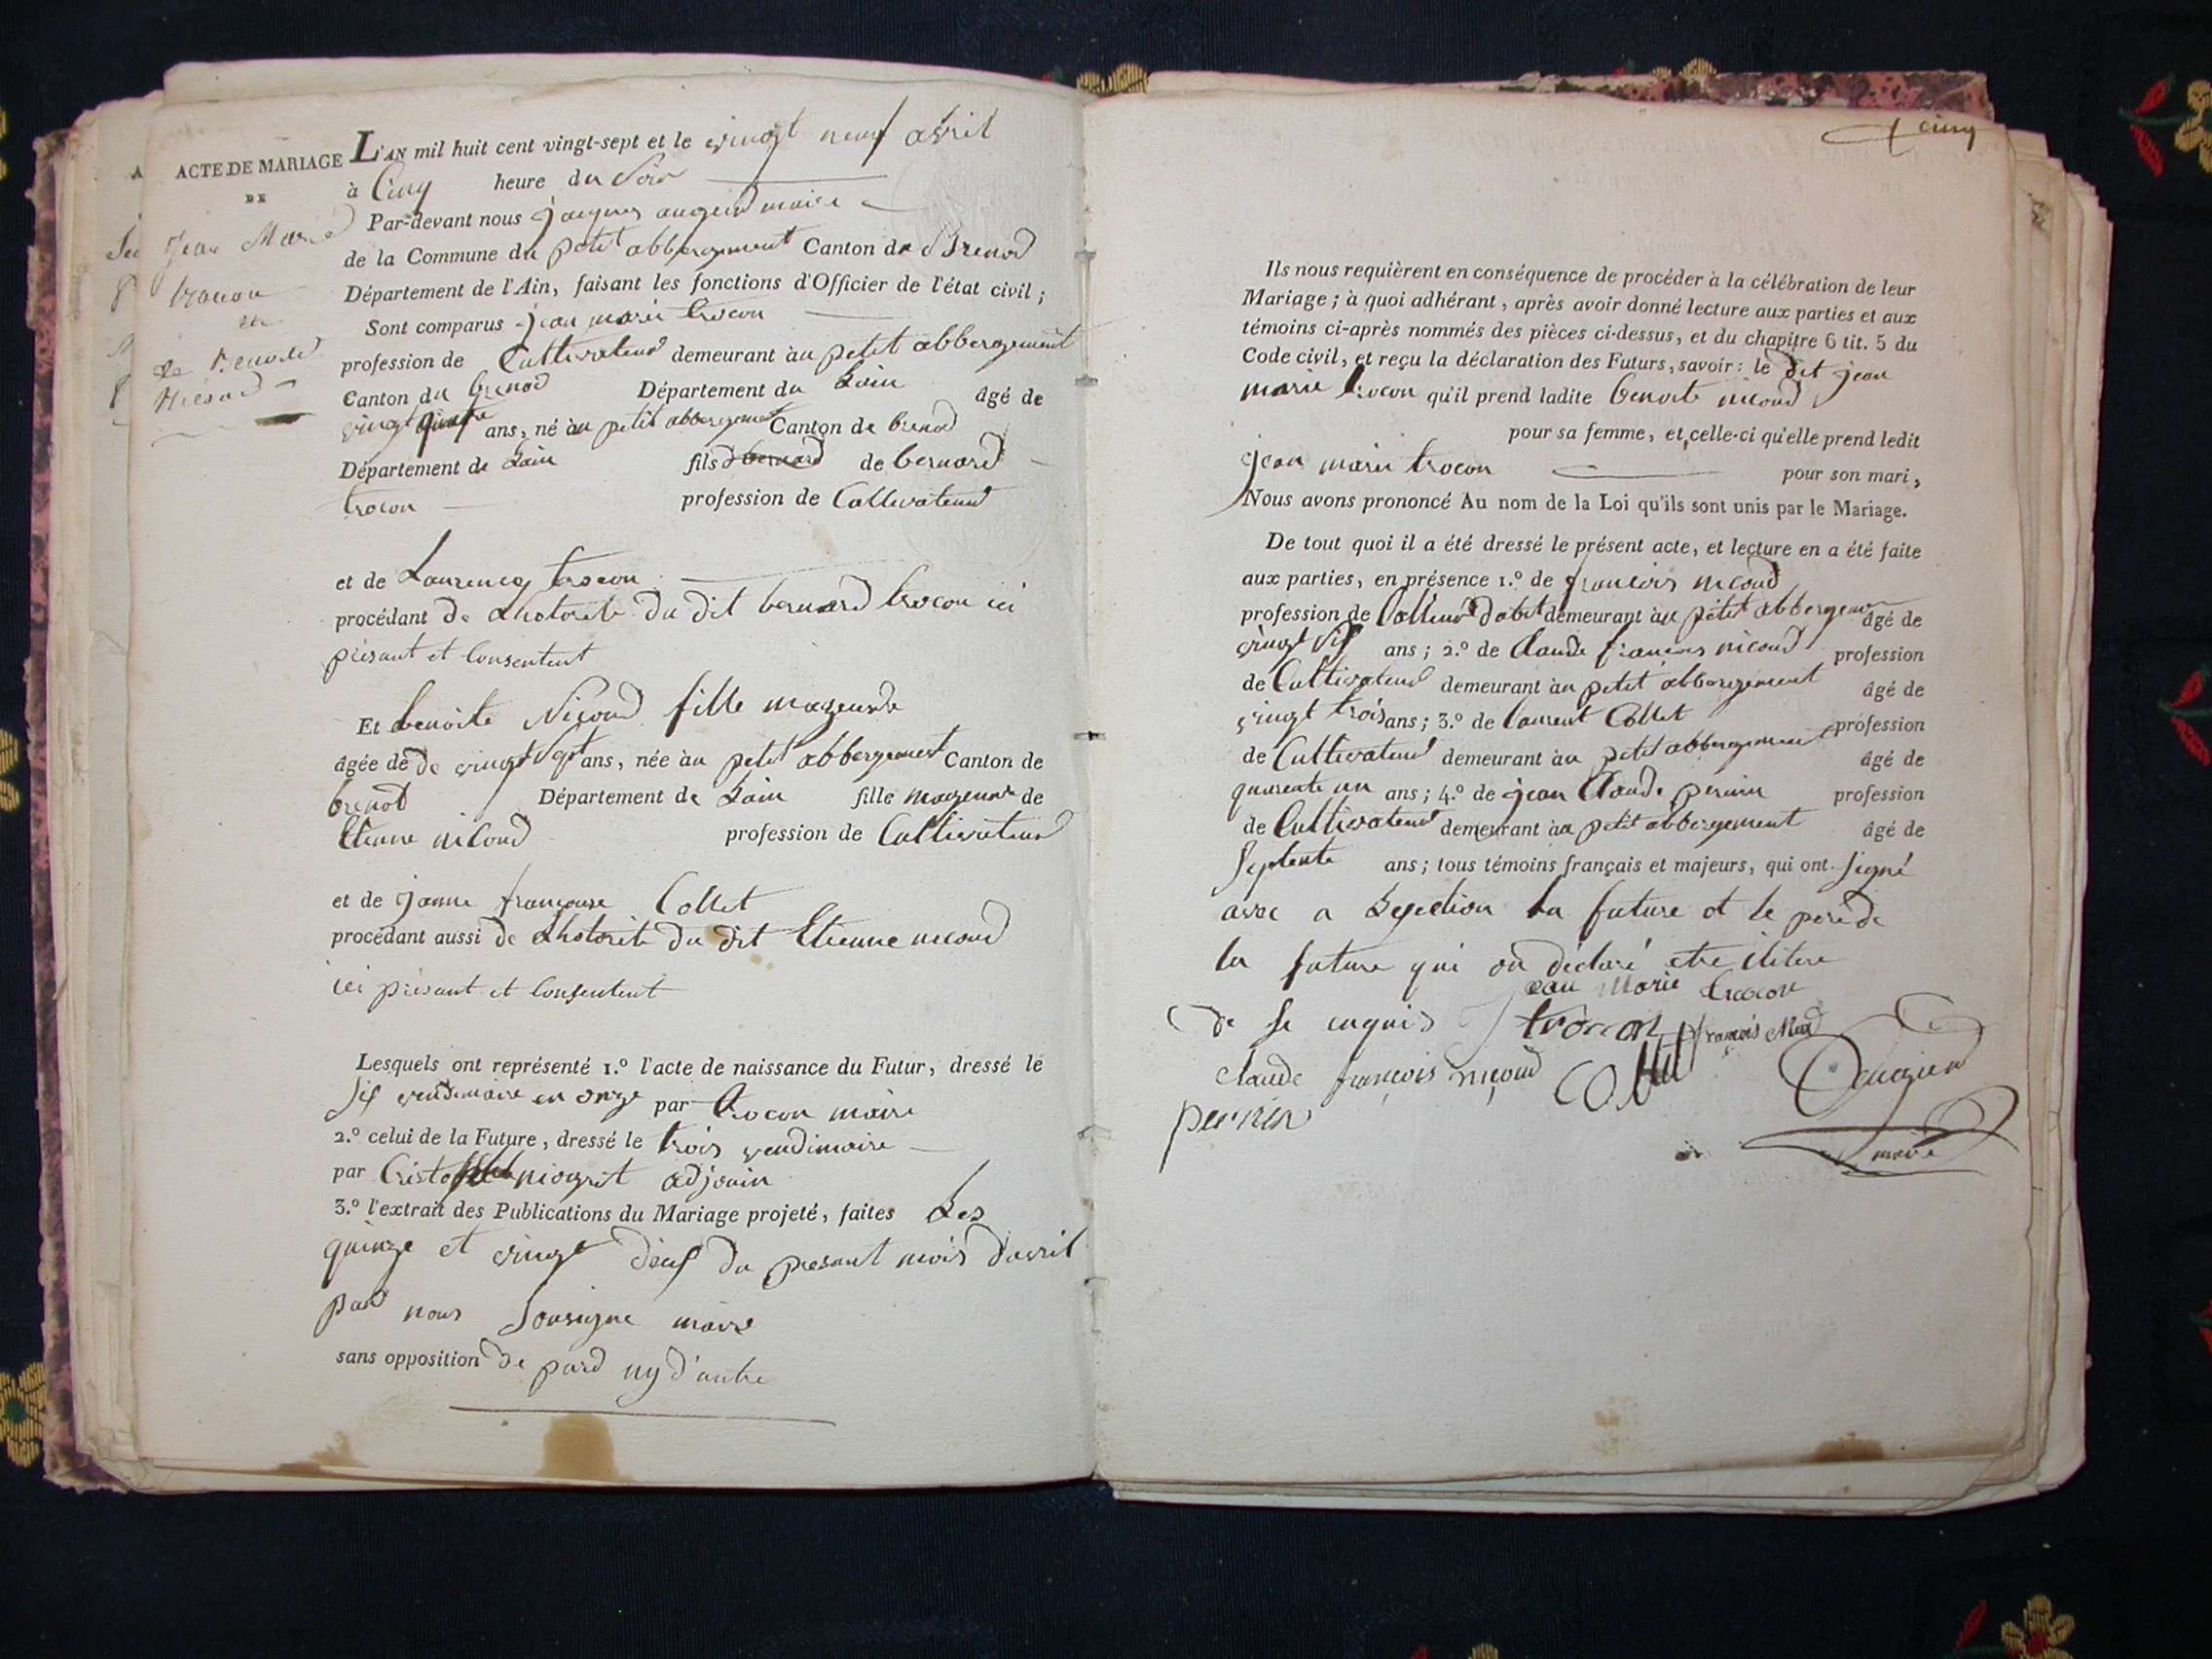 ACTE DE MARIAGE
DE
Jean Marie
trocon
et
de Benoite
Nicoud
L'AN mil huit cent vingt-sept et le vingt neuf avril
à Cinq heure du Soir
Par-devant nous jacques augerd maire
de la Commune du petit abbergement Canton de Brenod
Département de l'Ain, faisant les fonctions d'Officier de l'état civil;
Sont comparus jean marie trocon
profession de Cultivateur demeurant àu petit abbergement
Canton du brenod Département du Lain âgé de
vingt quatre ans, né àu petit abbergement Canton de brenod
Département de Lain fils de bernard
trocon profession de Cultivateur
et de Laurence trocon
procédant de Lhotorite du dit bernard trocon ici
présant et Consentent
Et benoite Nicoud fille mageure
âgée de de vingt Sept ans, née àu petit abbergement Canton de
brenod Département de Lain fille mageure de
Etienne nicoud profession de Cultivateur
et de janne françoise Collet
procédant aussi de Lhotorite du dit Etienne nicoud
ici présant et Consentent
Lesquels ont représenté 1.º l'acte de naissance du Futur, dressé le
Six vendemaire en onze par trocon maire
2.º celui de la Future, dressé le trois vendimaire
par adjouin
3.º l'extrait des Publications du Mariage projeté, faites Les
quinze et vingt deux du presant mois d'avril
par nous Sousigne maire
sans opposition de pard ny d'autre
cinq
Ils nous requièrent en conséquence de procéder à la célébration de leur
Mariage; à quoi adhérant, après avoir donné lecture aux parties et aux
témoins ci-après nommés des pièces ci-dessus, et du chapitre 6 tit. 5 du
Code civil, et reçu la déclaration des Futurs, savoir: le dit jean
marie trocon qu'il prend ladite benoite nicoud
pour sa femme, et celle-ci qu'elle prend ledit
jean marie trocon pour son mari,
Nous avons prononcé Au nom de la Loi qu'ils sont unis par le Mariage.
De tout quoi il a été dressé le présent acte, et lecture en a été faite
aux parties, en présence 1.º de francois nicoud
profession de demeurant àu petit abbergement âgé de
vingt Six ans; 2.º de Claude francois nicoud profession
de Cultivateur demeurant àu petit abbergement âgé de
vingt trois ans; 3.º de laurent Collet profession
de Cultivateur demeurant àu petit abbergement âgé de
quarente un ans; 4.º de jean Claude perrin profession
de Cultivateur demeurant àu petit abbergement âgé de
Septente ans; tous témoins français et majeurs, qui ont Signé
avec a Lexection La future et le pere de
la future qui on déclaré etre ilitere
de se enquis Jean Marie trocon
trocon françois
claude françois niçoud Collet Augerd
perrin maire